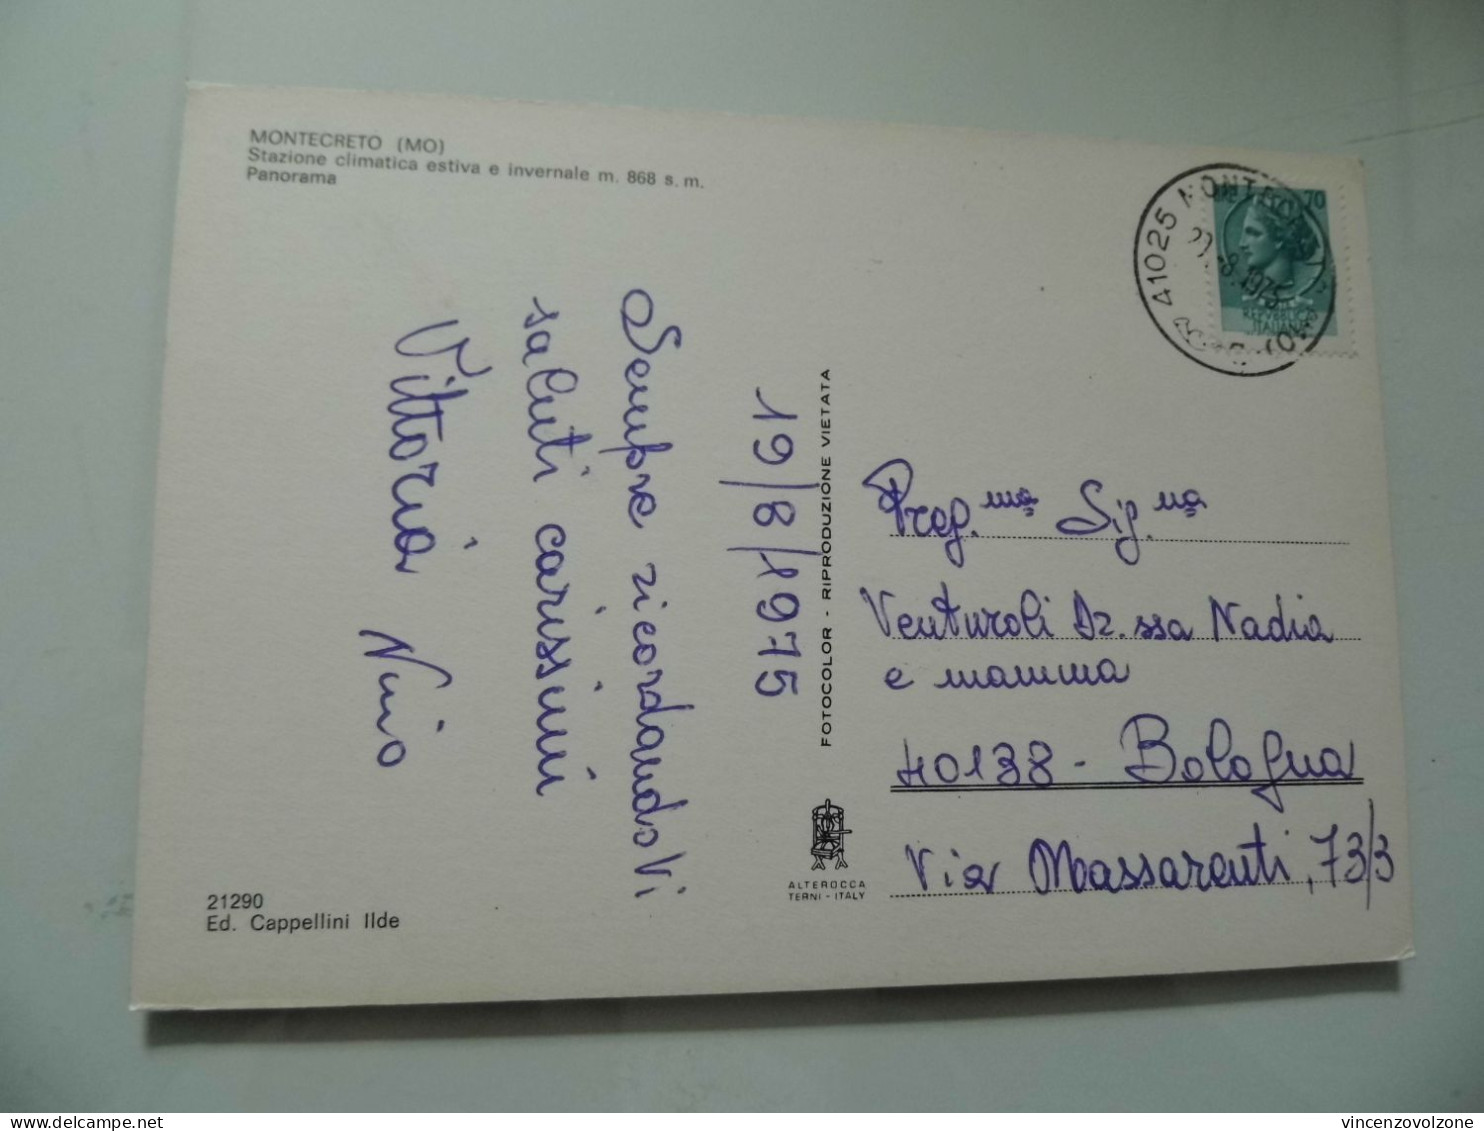 MONTECRETO (MO)
Stazione climatica estiva e invernale m. 868 s. m.
Panorama
19/8/1975
Sempre ricordandoVi
saluti carissimi
Vittoria Nino
FOTOCOLOR - RIPRODUZIONE VIETATA
ALTEROCCA
TERNI - ITALY
21290
Ed. Cappellini Ilde
41025
-8.1975
70
REPUBBLICA
ITALIANA
Preg.ma Sig.na
Venturoli Dr.ssa Nadia
e mamma
40138 - Bologna
Via Massarenti, 73/3
vincenzovolzone